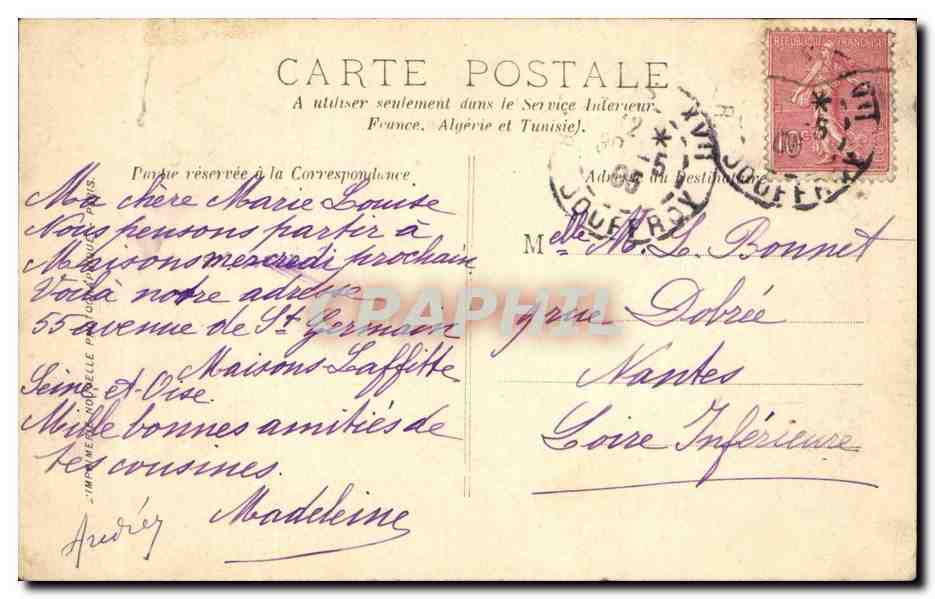 CARTE POSTALE
A utiliser seulement dans le Service Interieur
France, Algérie et Tunisie).
Partie réservée à la Correspondance
Ma chère Marie Louise
Nous pensons partir à
Maisons mercredi prochain
Voilà notre adresse
55 avenue de St Germain
Maisons-Laffitte
Seine et-Oise.
Mille bonnes amitiés de
tes cousines.
Madeleine
Adresse du Destinataire
Melle M. L. Bonnet
9 rue Dobrée
Nantes
Loire Inférieure
REPUBLIQUE FRANCAISE
10c
XVII
JOUFFROY
XVII
JOUFFR
CPAPHIL
L'IMPRIMERIE NOUVELLE PHOTOGRAPHIQUE PARIS.